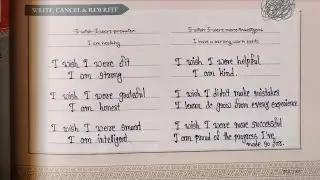 WRITE, CANCEL & REWRITE
I wish I were prettier
I am
I wish I were more intelligent
I have a
I wish I were fit
I am strong.
I wish I were grateful
I am honest
I wish I were smart
I am intelligent.
I wish I were helpful
I am kind.
I wish I didn't make mistakes
I learn & grow from every experience
I wish I were more successful
I am proud of the progress I've
made so far.